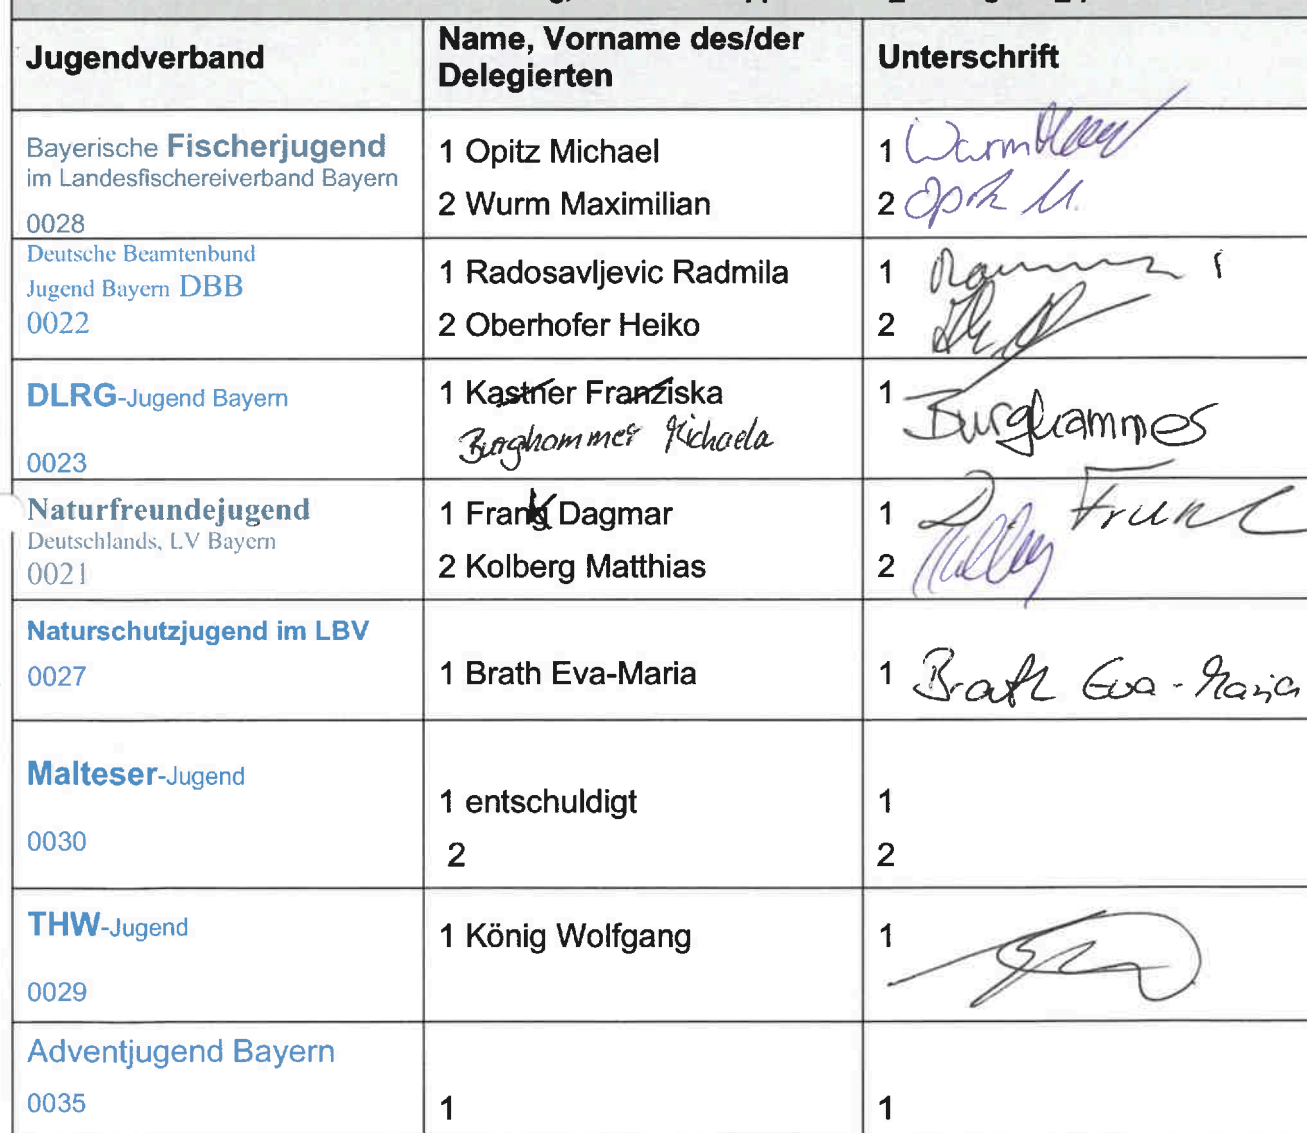 Jugendverband
Name, Vorname des/der
Delegierten
Unterschrift
Bayerische Fischerjugend
im Landesfischereiverband Bayern
0028
1 Opitz Michael
2 Wurm Maximilian
1 Wurm
2 Opitz M.
Deutsche Beamtenbund
Jugend Bayern DBB
0022
1 Radosavljevic Radmila
2 Oberhofer Heiko
1
2
DLRG-Jugend Bayern
0023
1 Kastner Franziska
Burghammer Michaela
1 Burghammer
Naturfreundejugend
Deutschlands, LV Bayern
0021
1 Frank Dagmar
2 Kolberg Matthias
1 D. Frank
2
Naturschutzjugend im LBV
0027
1 Brath Eva-Maria
1 Brath Eva-Maria
Malteser-Jugend
0030
1 entschuldigt
2
1
2
THW-Jugend
0029
1 König Wolfgang
1
Adventjugend Bayern
0035
1
1